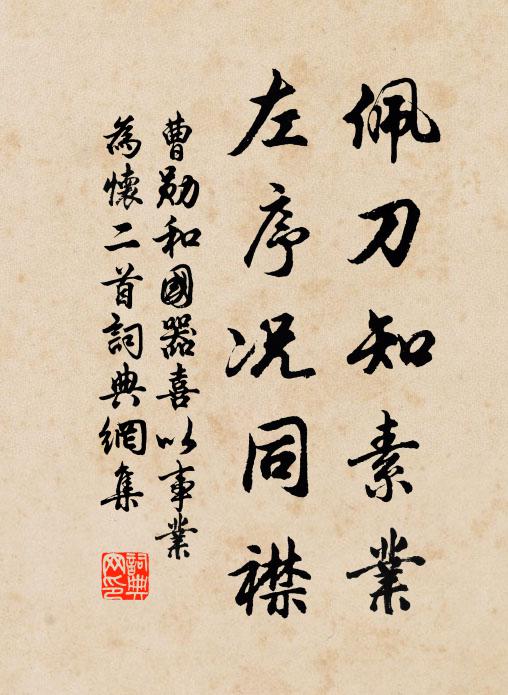 佩刀知素業
左序况同襟
曹勛和國器喜以事業
為懷二首詞典網集
詞典
网印